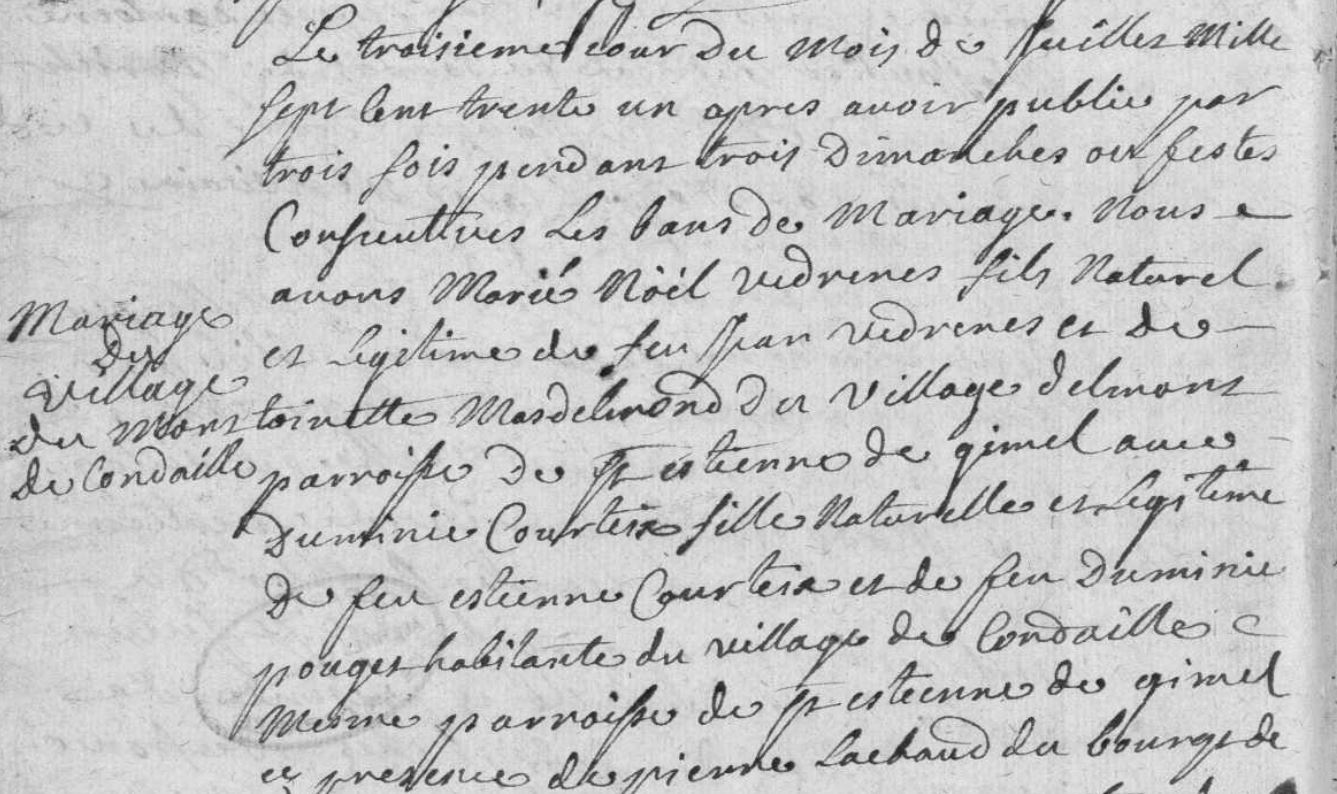 Le troisieme jour du mois de Juillet mille
sept cent trente un apres avoir publie par
trois fois pendant trois Dimanches ou festes
Consecutives Les bans de Mariage. Nous
avons Marié Nöel vedrenes fils Naturel
et Legitime de feu Jean vedrenes et de
toinette Masdelmond du village delmont
parroisse de St estienne de gimel avec
Duminie Courteix fille Naturelle et Legitime
De feu estienne Courteix et de feu Duminie
pouget habitante du village de Condaille
Mesme parroisse de St estienne de gimel
et presence de pierre Lachaud du bourg de
Mariage
Du
village
du Mont
de Condaille